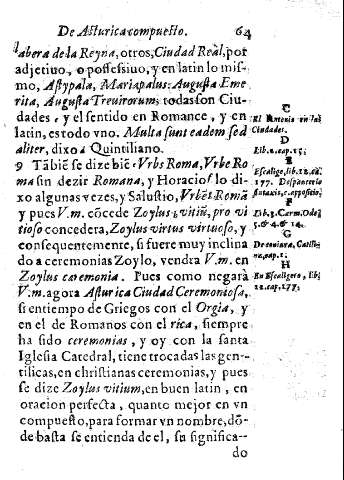 De Asturica compuesto. 64
labera de la Reyna, otros, Ciudad Real, por
adjetiuo, o possessiuo, y en latin lo mis-
mo, Astypala, Mariapalus: Augusta Eme
rita, Augusta Treuirorum: todas son Ciu-
dades, y el sentido en Romance, y en
latin, es todo vno. Multa sunt eadem sed
aliter, dixo a Quintiliano.
9 Tābiē se dize biē Vrbs Roma, Vrbe Ro
ma sin dezir Romana, y Horacio lo di-
xo algunas vezes, y Salustio, Vrbē Romā
y pues V.m. cōcede Zoylus vitiū, pro vi
tioso concedera, Zoylus virtus virtuoso, y
consequentemente, si fuere muy inclina
do a ceremonias Zoylo, vendra V.m. en
Zoylus caremonia. Pues como negarà
V.m. agora Asturica Ciudad Ceremontosa,
si entiempo de Griegos con el Orgia, y
en el de Romanos con el rica, siempre
ha sido ceremonias, y oy con la santa
Iglesia Catedral, tiene trocadas las gen-
tilicas, en christianas ceremonias, y pues
se dize Zoylus vitium, en buen latin, en
oracion perfecta, quanto mejor en vn
compuesto, para formar vn nombre, dō-
de basta se entienda de el, su significa--
do
C
El Antonio en las
Ciudades.
D
Lib. 2. cap. 15;
E
Escalige, lib. 12. cā.
177. Despauterio
sintaxis, c. appositio;
F
Lib. 3. Carm. Ode;
5. & 4. & 14.
G
De coniura, Catilin
næ, cap. 1;
H
En Escaligero, lib;
12. cap. 177;